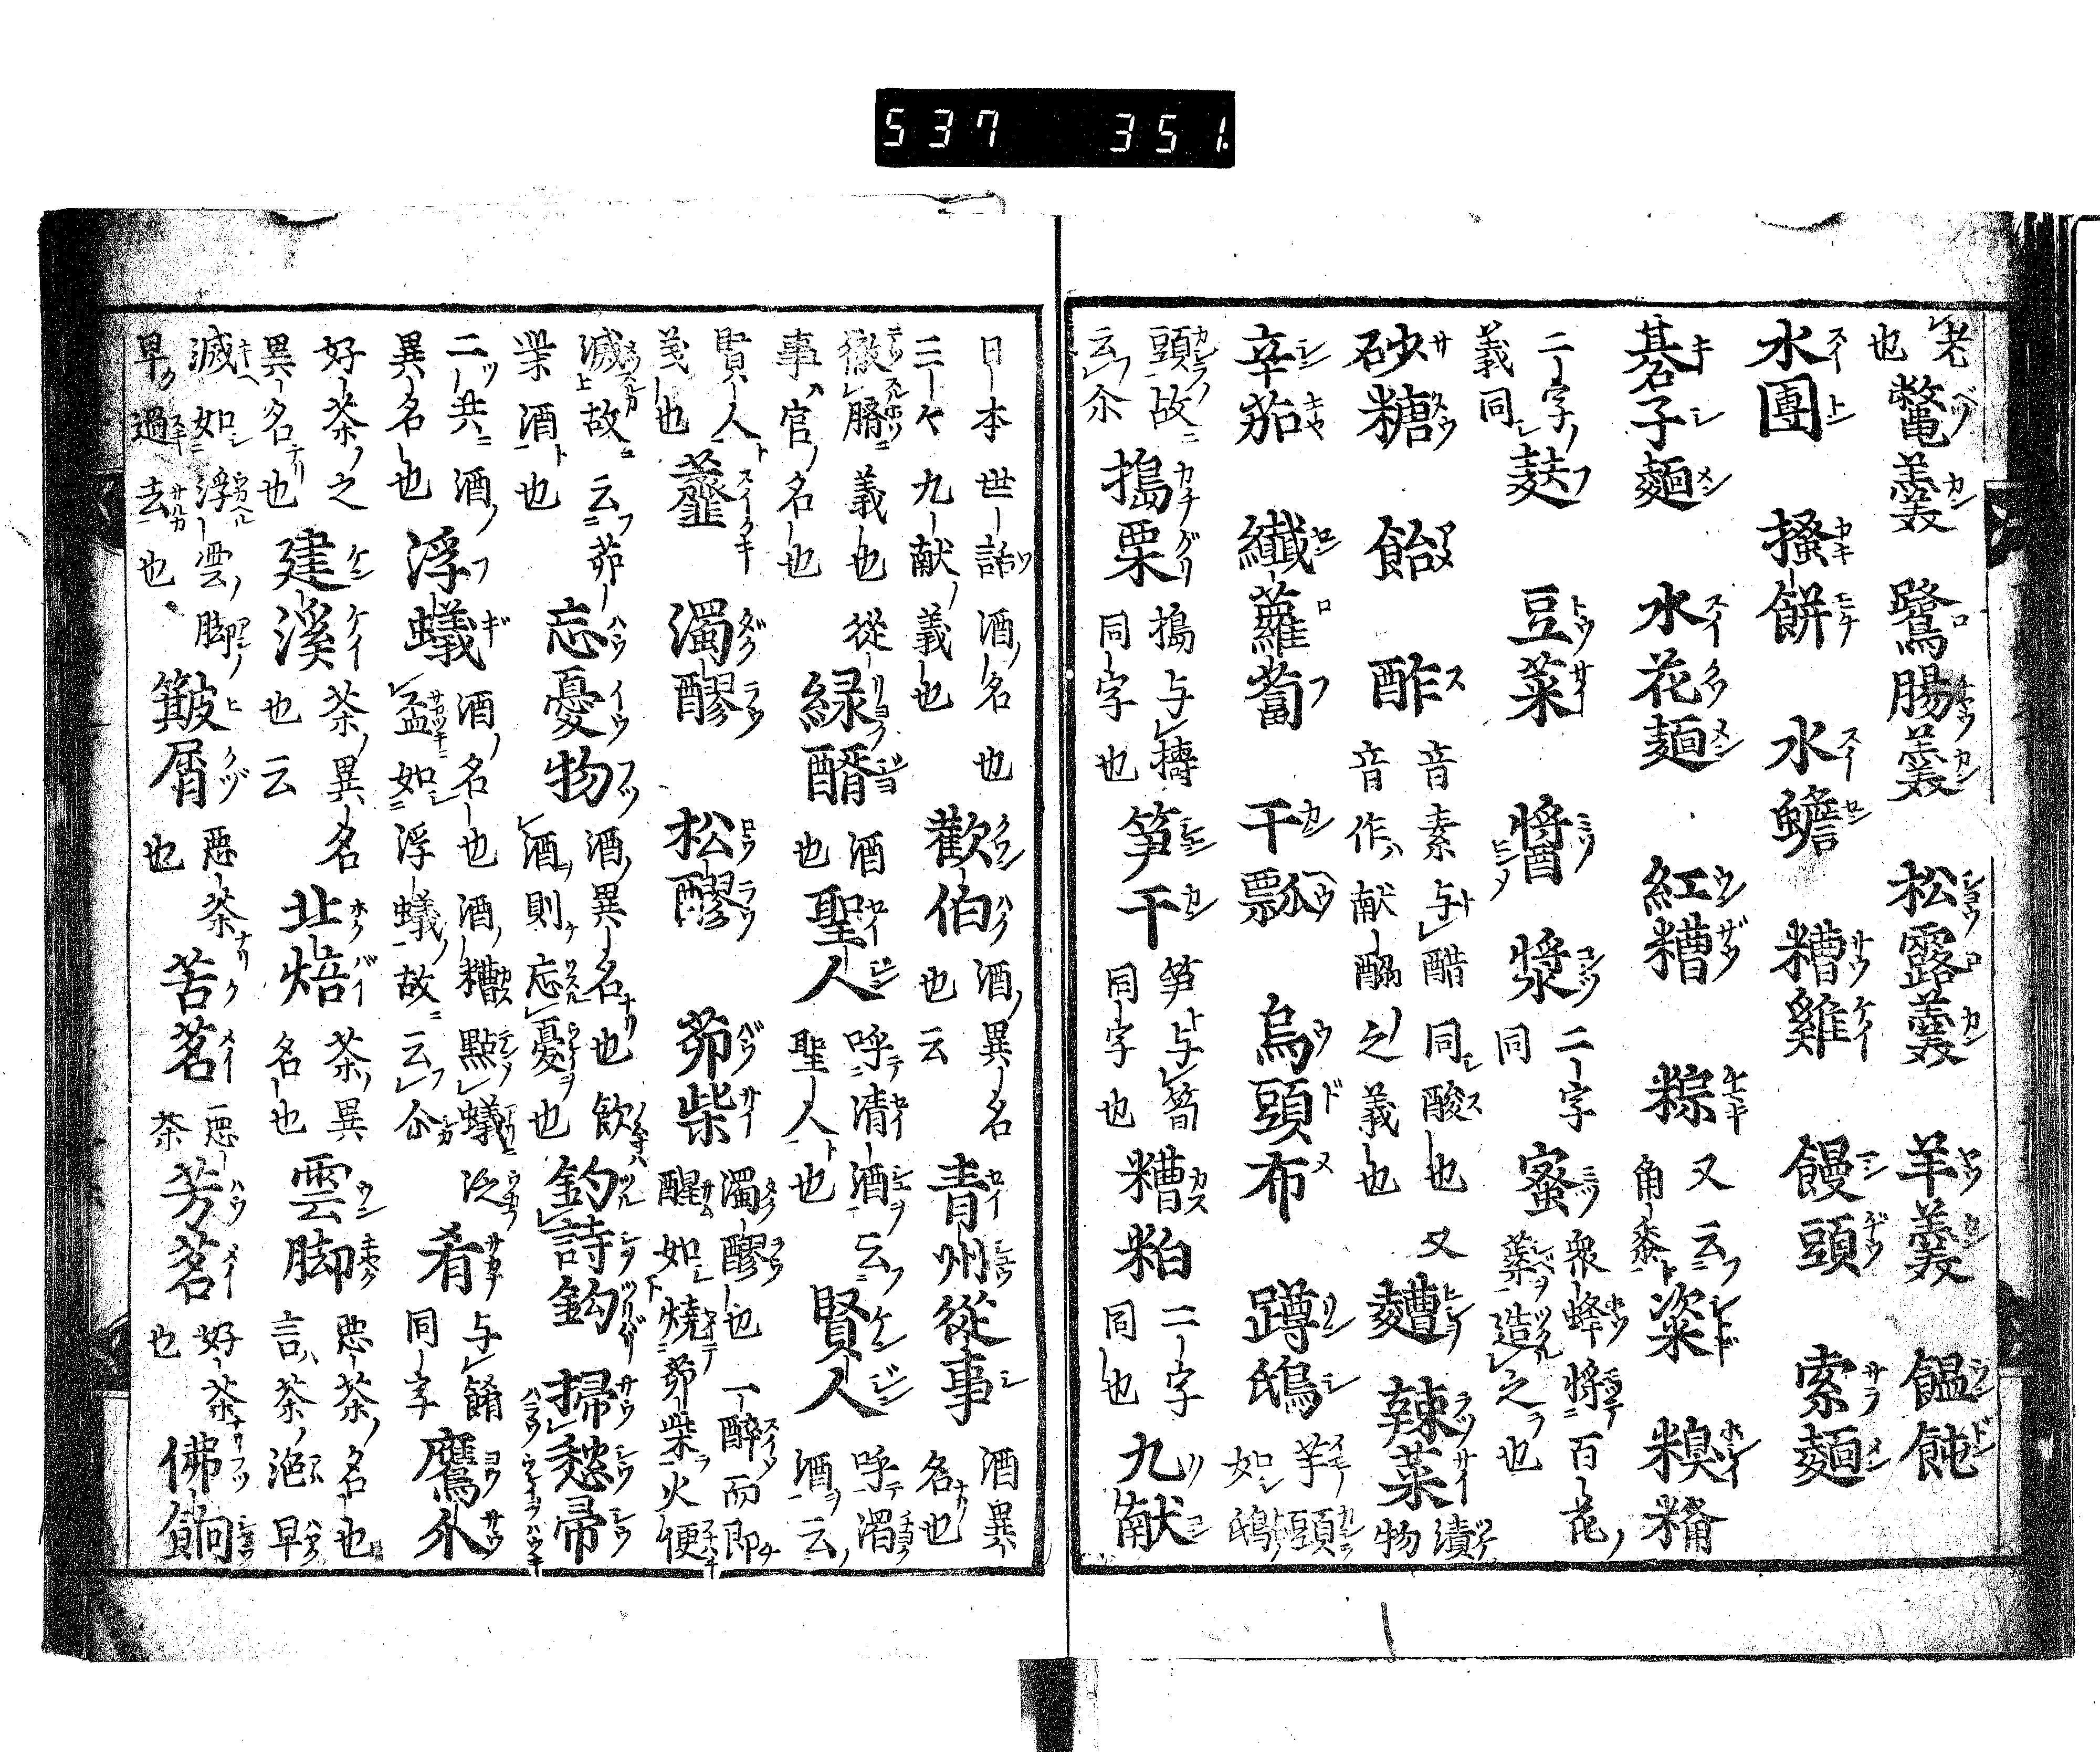 537 351.
老也 鼈羹 鷺腸羹 松露羹 羊羹 饂飩
水團 搔餅 水蟾 糟雞 饅頭 索麵
碁子麵 水花麺 紅糟 粽 又云角黍 粢 糗糒
二字義同 麸 豆菜 醤 漿 二字同 蜜 衆蜂将百花蘂造之也
砂糖 飴 酢 音素与醋同酸也又音作献酬之義也 䊆 辣菜 漬物
辛茄 繊蘿蔔 干瓢 烏頭布 蹲鴟 芋頭如鴟
頭故云尓 搗栗 搗与擣同字也 笋干 笋与筍同字也 糟粕 二字同也 九献
日本世話酒名也三々九献義也 歡伯 酒異名也云 青州從事 酒異名也
徹臍義也從事官名也 緑醑 酒也 聖人 呼清酒云聖人也 賢人 呼濁酒云
賢人義也 虀 濁醪 松醪 茆柴 濁醪也一醉而即醒如燒茆柴火便
滅故云茆柴酒也 忘憂物 酒異名也飲酒則忘憂也 釣詩鈎 掃愁帚
二共酒異名也 浮蟻 酒名也酒糟點蟻泛盃如浮蟻故云尓 肴 与餚同字 鷹爪
好茶之異名也 建溪 茶異名也云 北焙 茶異名也 雲脚 悪茶名也言茶泡早
滅如浮雲脚早過去也 簸屑 悪茶也 苦茗 悪茶 芳茗 好茶也 佛餉